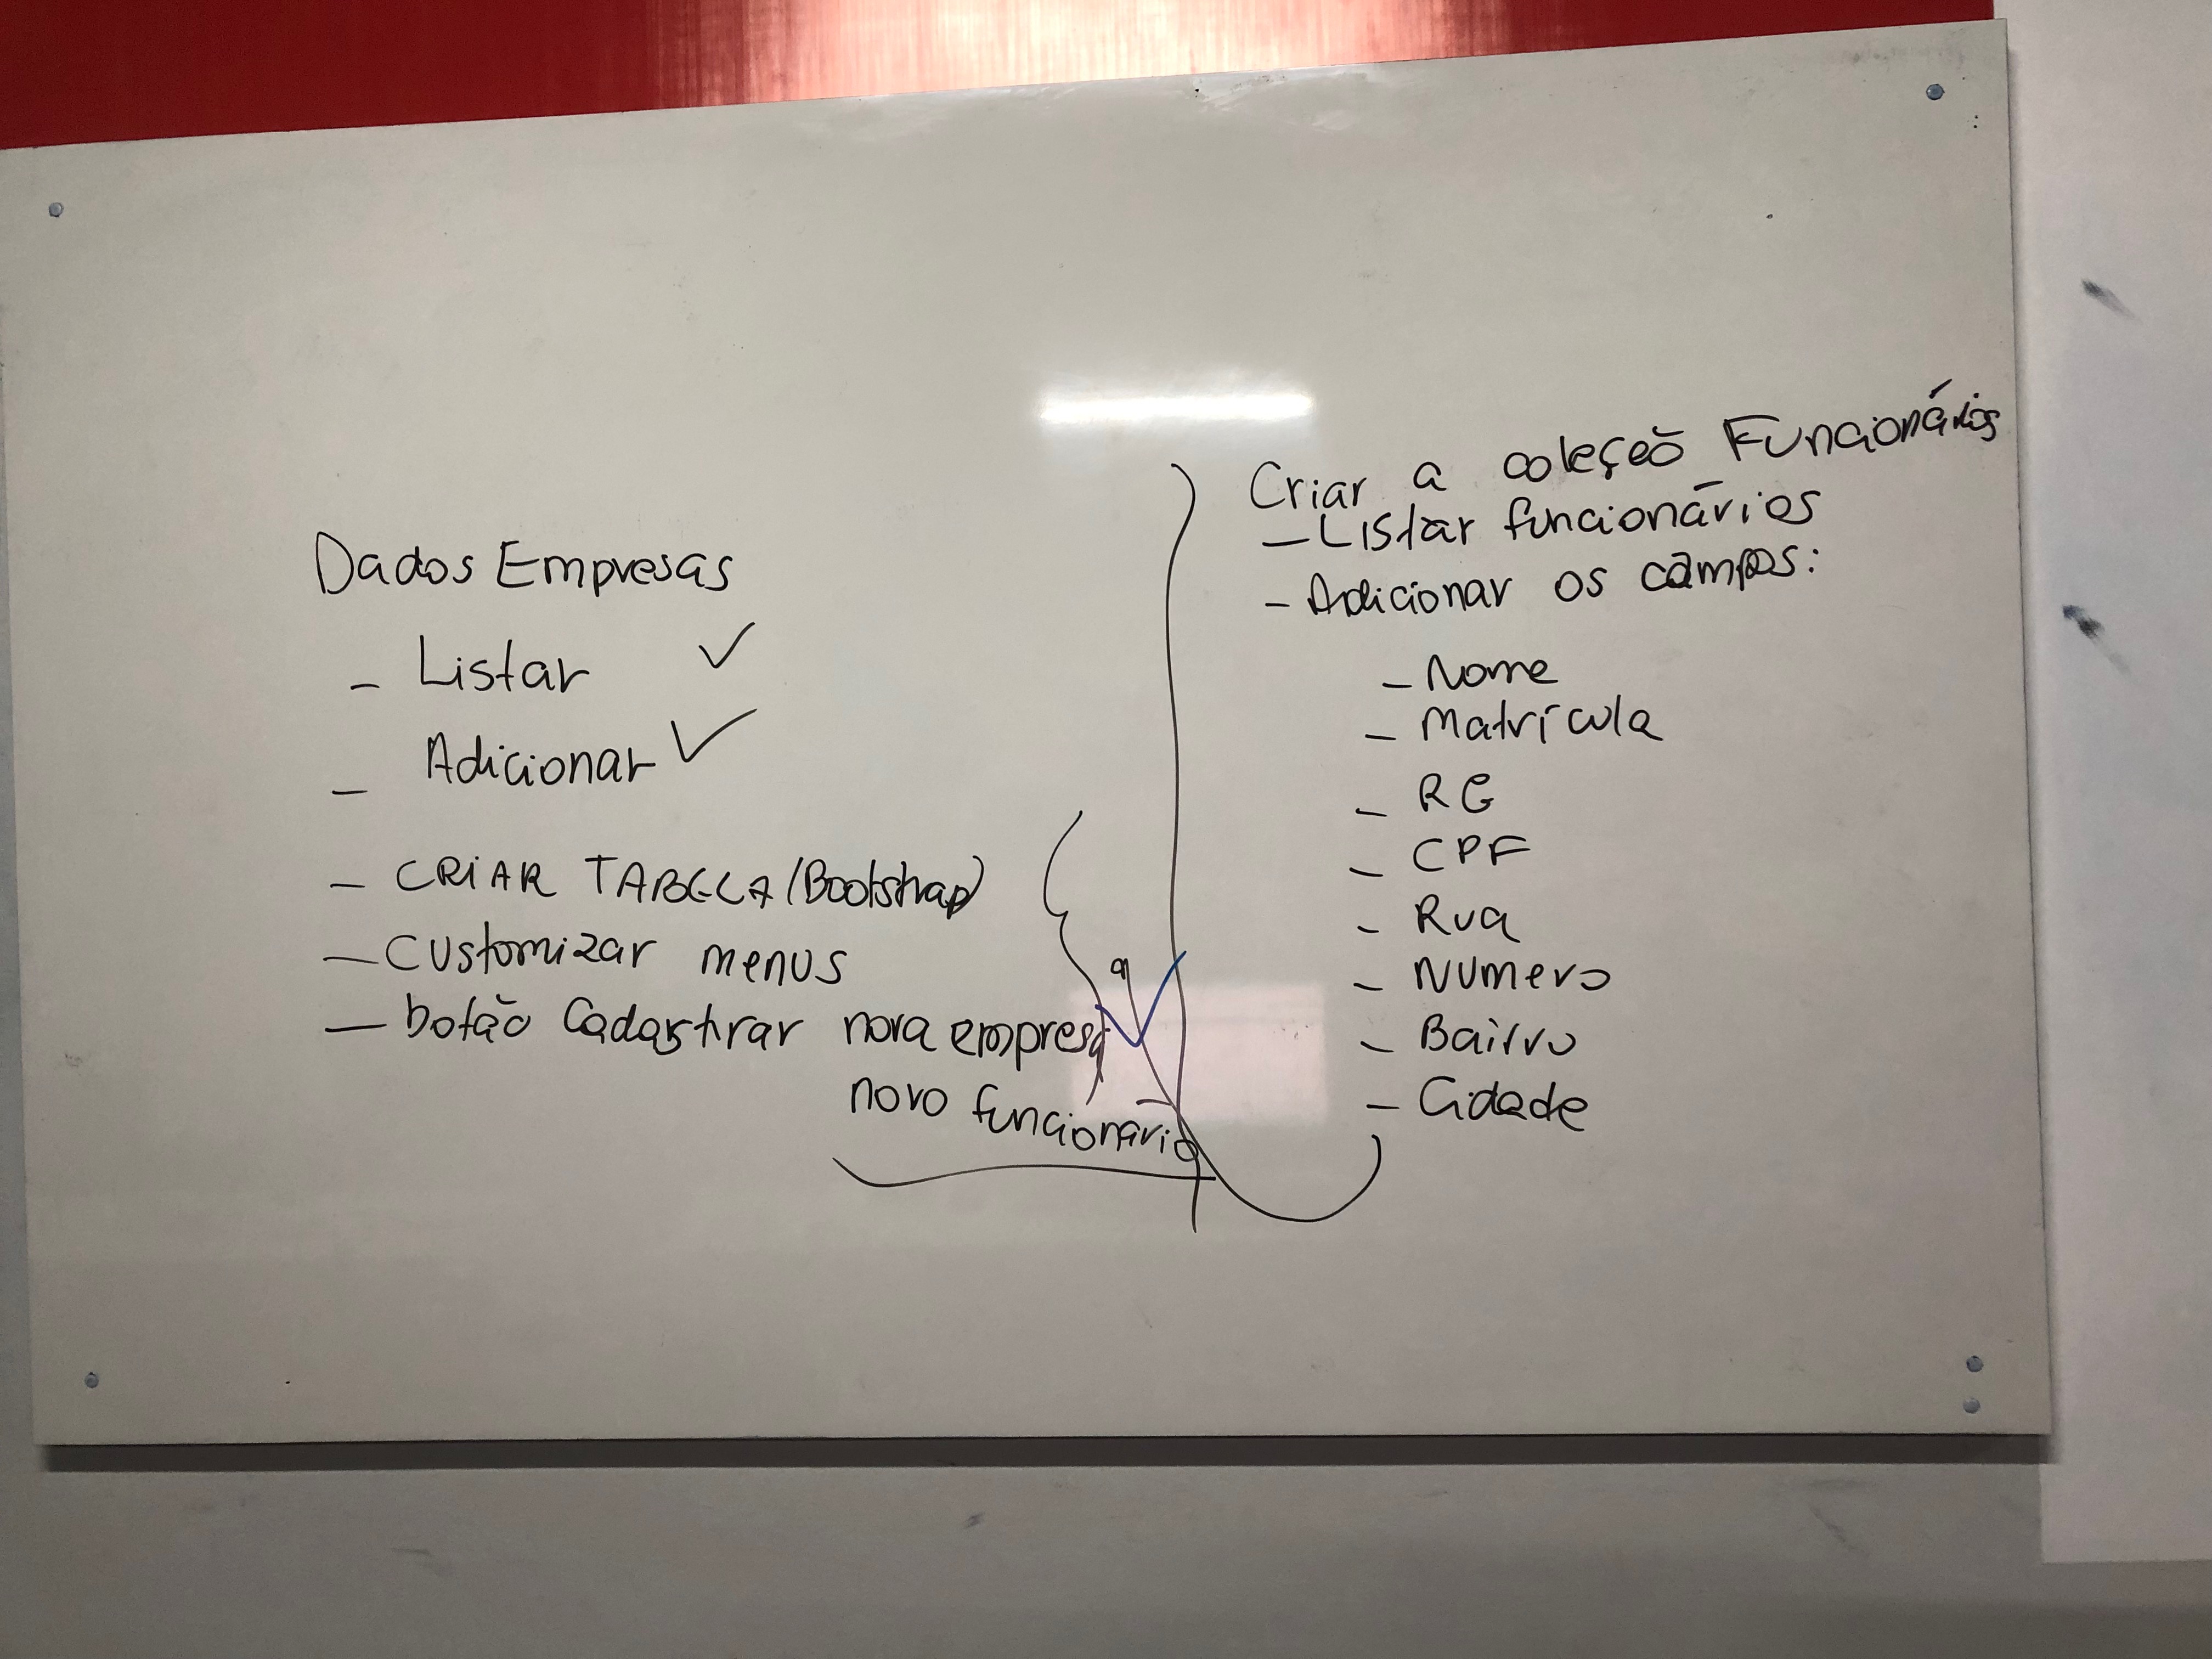 Dados Empresas
- Listar ✓
- Adicionar ✓
- CRIAR TABELA (Bootstrap)
- Customizar menus
- botão Cadastrar nova empresa ✓
novo funcionário
Criar a coleção Funcionários
- Listar funcionários
- Adicionar os campos:
- Nome
- Matrícula
- RG
- CPF
- Rua
- Numero
- Bairro
- Cidade